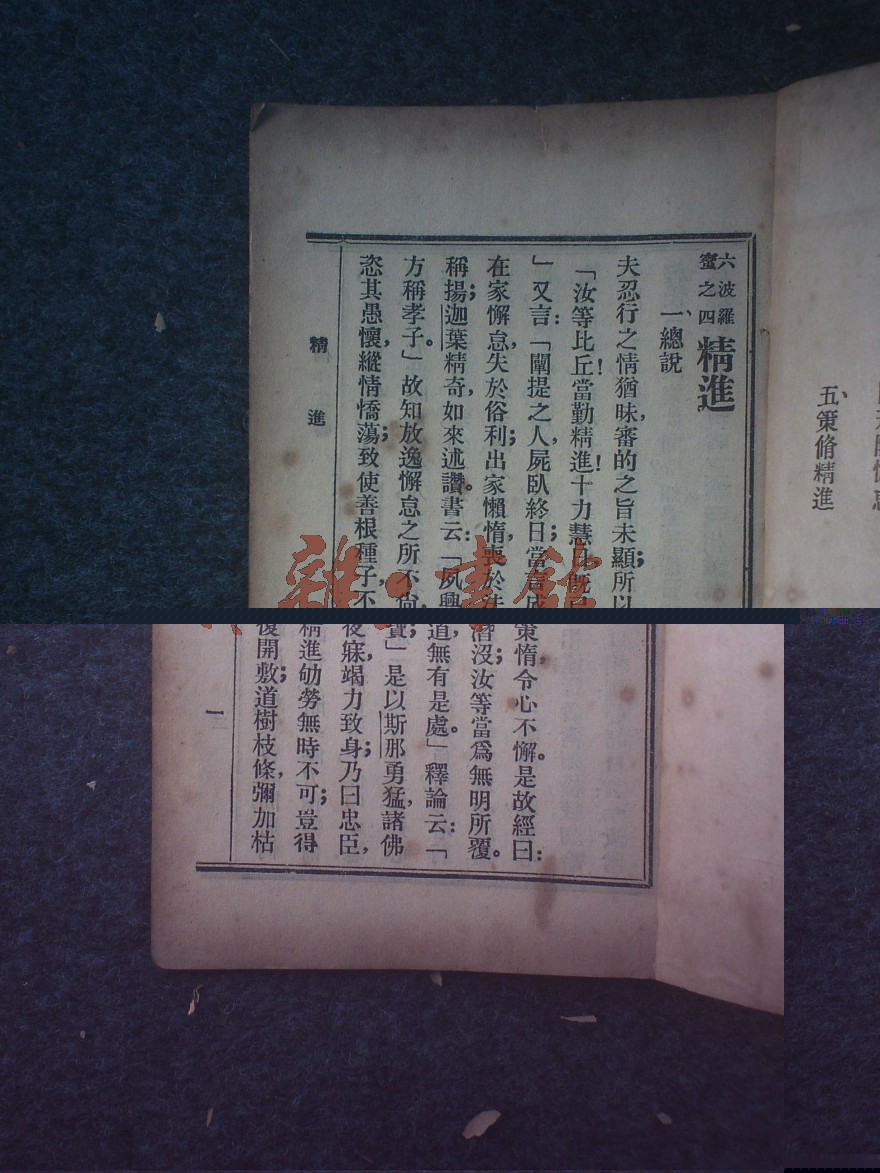 五、策脩精進
六波羅蜜之四 精進
一、總說
夫忍行之情猶昧，審的之旨未顯；所以策惰，令心不懈。是故經曰：
「汝等比丘！當勤精進！十力慧日既已潛沒；汝等當爲無明所覆。
」又言：「闡提之人，屍臥終日；當言成道，無有是處。」釋論云：「
在家懈怠，失於俗利；出家懶惰，喪於法寶；」是以斯那勇猛，諸佛
稱揚；迦葉精奇，如來述讚。書云：「夙興夜寐，竭力致身；乃曰忠臣，
方稱孝子。」故知放逸懈怠之所不尙，精進劬勞，無時不可；豈得
恣其愚懷，縱情憍蕩；致使善根種子，不復開敷；道樹枝條，彌加枯
精進
一